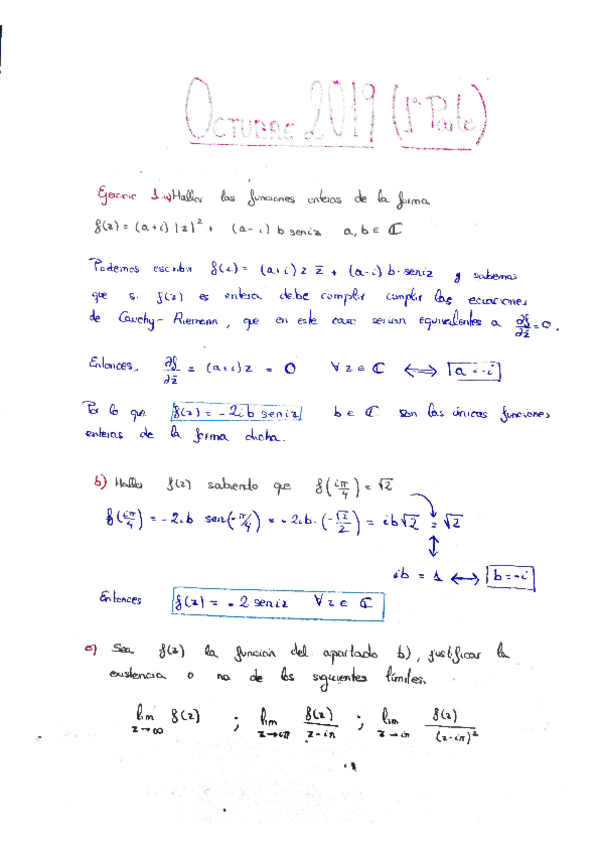 OCTUBRE 2019 (1ª Parte)
Ejercicio 1. a) Hallar las funciones enteras de la forma
f(z) = (a+i) |z|² + (a-i) b sen iz a, b ∈ ℂ
Podemos escribir f(z) = (a+i) z · z̅ + (a-i) b · sen iz y sabemos
que si f(z) es entera debe cumplir cumplir las ecuaciones
de Cauchy-Riemann, que en este caso serían equivalentes a ∂f/∂z̅ = 0.
Entonces, ∂f/∂z̅ = (a+i) z = 0 ∀ z ∈ ℂ ⟺ a = -i
Por lo que f(z) = -2ib sen iz b ∈ ℂ son las únicas funciones
enteras de la forma dicha.
b) Hallar f(z) sabiendo que f(iπ/4) = √2
f(iπ/4) = -2ib sen(-π/4) = -2ib · (-√2/2) = ib√2 = √2
ib = 1 ⟷ b = -i
Entonces f(z) = -2 sen iz ∀ z ∈ ℂ
c) Sea f(z) la función del apartado b), justificar la
existencia o no de los siguientes límites.
lim z→∞ f(z) ; lim z→iπ f(z)/(z-iπ) ; lim z→iπ f(z)/(z-iπ)²